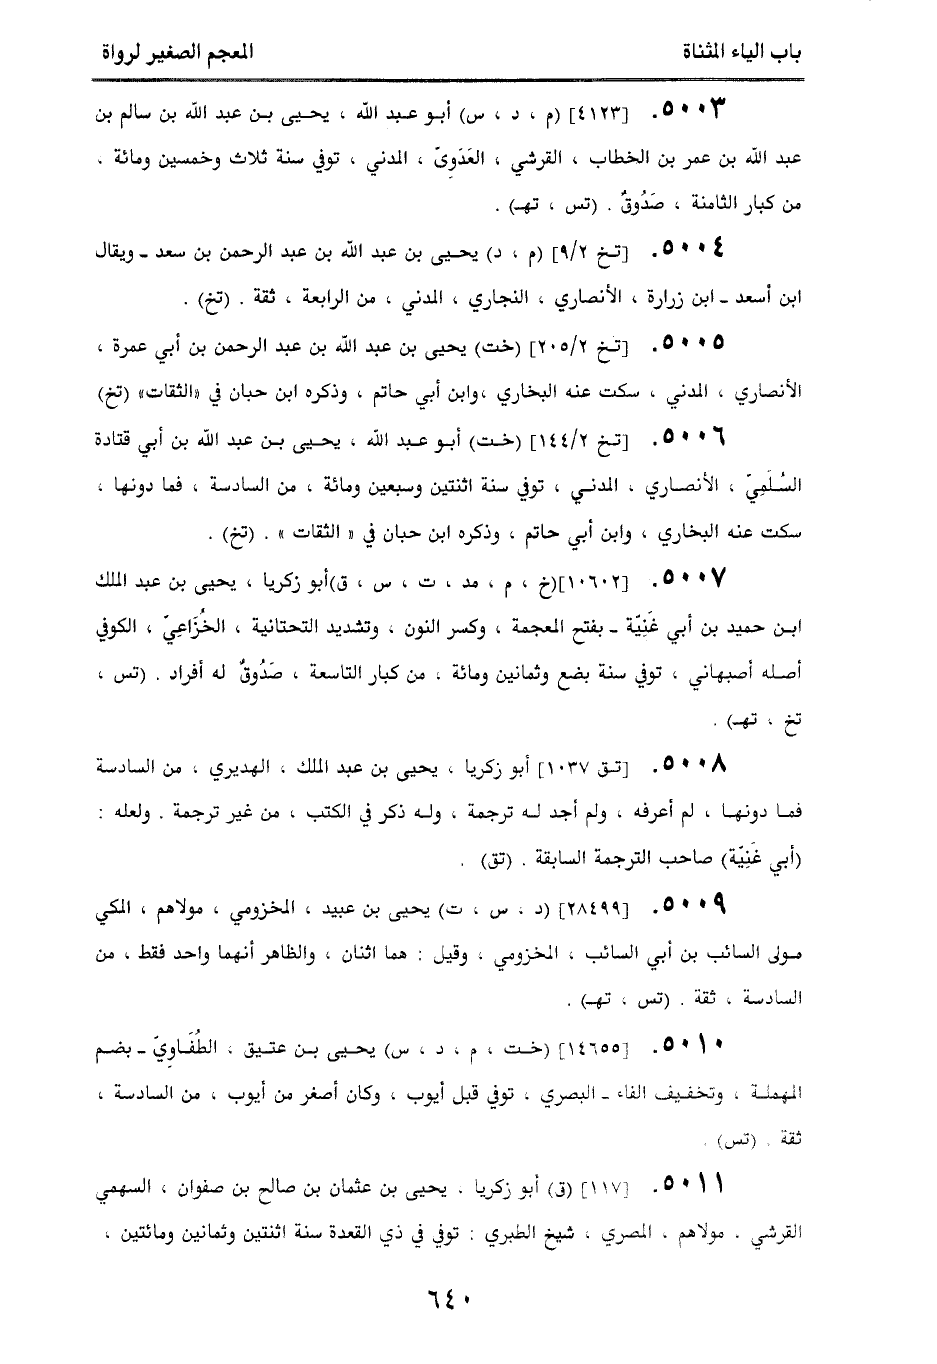 باب الياء المثناة
المعجم الصغير لرواة
٥٠٠٣. [٤١٢٣] (م ، د ، س) أبو عبد الله ، يحيى بن عبد الله بن سالم بن
عبد الله بن عمر بن الخطاب ، القرشي ، العَدَوِيّ ، المدني ، توفي سنة ثلاث وخمسين ومائة ،
من كبار الثامنة ، صَدُوقٌ . (تس ، تهـ) .
٥٠٠٤. [تخ ٩/٢] (م ، د) يحيى بن عبد الله بن عبد الرحمن بن سعد ـ ويقال
ابن أسعد ـ ابن زرارة ، الأنصاري ، النجاري ، المدني ، من الرابعة ، ثقة . (تخ) .
٥٠٠٥. [تخ ٢٠٥/٢] (خت) يحيى بن عبد الله بن عبد الرحمن بن أبي عمرة ،
الأنصاري ، المدني ، سكت عنه البخاري ،وابن أبي حاتم ، وذكره ابن حبان في «الثقات» (تخ)
٥٠٠٦. [تخ ١٤٤/٢] (خت) أبو عبد الله ، يحيى بن عبد الله بن أبي قتادة
السُلَمِيّ ، الأنصاري ، المدني ، توفي سنة اثنتين وسبعين ومائة ، من السادسة ، فما دونها ،
سكت عنه البخاري ، وابن أبي حاتم ، وذكره ابن حبان في « الثقات » . (تخ) .
٥٠٠٧. [١٠٦٠٢](خ ، م ، مد ، ت ، س ، ق)أبو زكريا ، يحيى بن عبد الملك
ابن حميد بن أبي غَنِيّة ـ بفتح المعجمة ، وكسر النون ، وتشديد التحتانية ، الخُزَاعِيّ ، الكوفي
أصله أصبهاني ، توفي سنة بضع وثمانين ومائة ، من كبار التاسعة ، صَدُوقٌ له أفراد . (تس ،
تخ ، تهـ) .
٥٠٠٨. [تق ١٠٣٧] أبو زكريا ، يحيى بن عبد الملك ، الهديري ، من السادسة
فما دونها ، لم أعرفه ، ولم أجد له ترجمة ، وله ذكر في الكتب ، من غير ترجمة . ولعله :
(أبي غَنِيّة) صاحب الترجمة السابقة . (تق) .
٥٠٠٩. [٢٨٤٩٩] (د ، س ، ت) يحيى بن عبيد ، المخزومي ، مولاهم ، المكي
مولى السائب بن أبي السائب ، المخزومي ، وقيل : هما اثنان ، والظاهر أنهما واحد فقط ، من
السادسة ، ثقة . (تس ، تهـ) .
٥٠١٠. [١٤٦٥٥] (خت ، م ، د ، س) يحيى بن عتيق ، الطُفَاوِيّ ـ بضم
المهملة ، وتخفيف الفاء ـ البصري ، توفي قبل أيوب ، وكان أصغر من أيوب ، من السادسة ،
ثقة . (تس) .
٥٠١١. [١١٧] (ق) أبو زكريا . يحيى بن عثمان بن صالح بن صفوان ، السهمي
القرشي . مولاهم ، المصري ، شيخ الطبري : توفي في ذي القعدة سنة اثنتين وثمانين ومائتين ،
٦٤٠